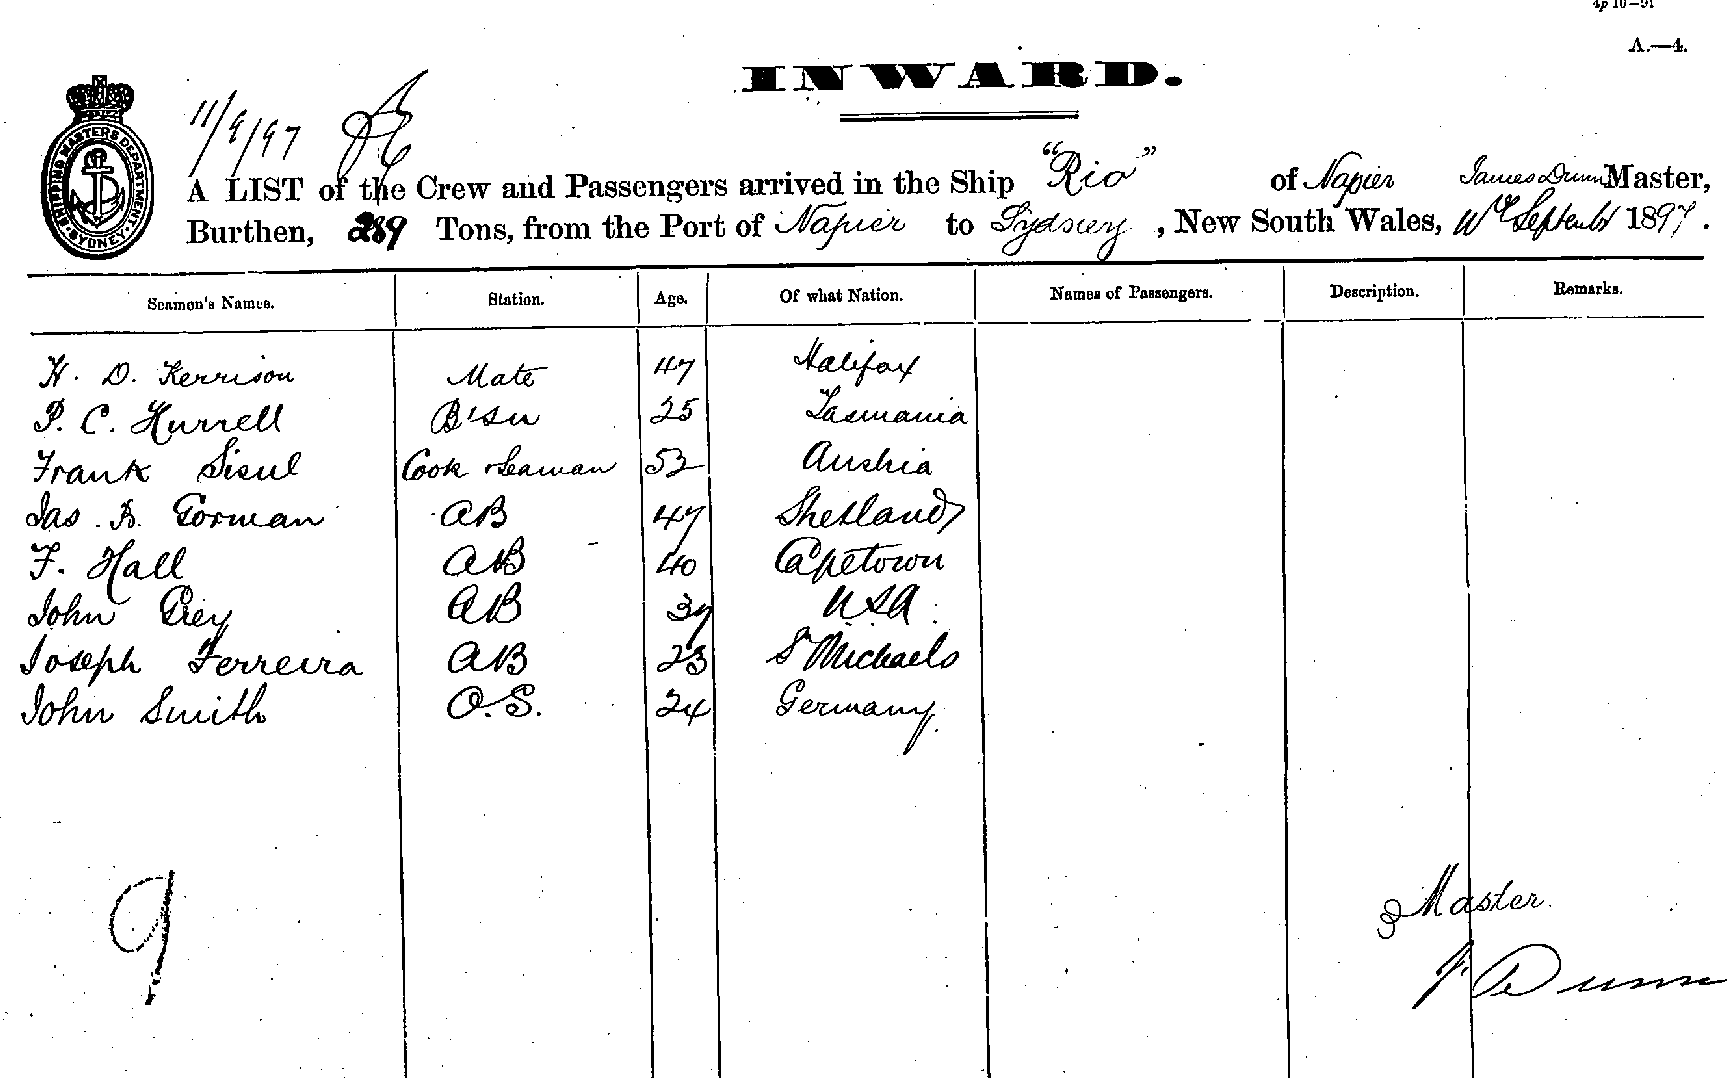 4p 10—91
A.—4.
INWARD.
SHIPPING MASTERS DEPARTMENT SYDNEY
11/9/97
A LIST of the Crew and Passengers arrived in the Ship "Rio" of Napier James Dunn Master,
Burthen, 289 Tons, from the Port of Napier to Sydney, New South Wales, September 1897.
Seamen's Names. Station. Age. Of what Nation. Names of Passengers. Description. Remarks.
H. D. Kerrison Mate 47 Halifax
P. C. Hurrell B'sn 25 Tasmania
Frank Sisul Cook & Seaman 52 Austria
Jas. R. Gorman AB 47 Shetland
F. Hall AB 40 Capetown
John Grey AB 37 USA
Joseph Ferreira AB 23 St Michaels
John Smith O.S. 24 Germany
9
Master
J. Dunn